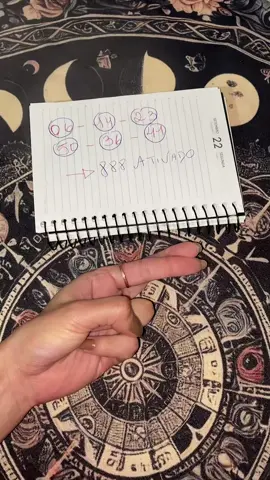 06 - 14 - 23
55 - 36 - 41
→ 888 ATIVADO
22